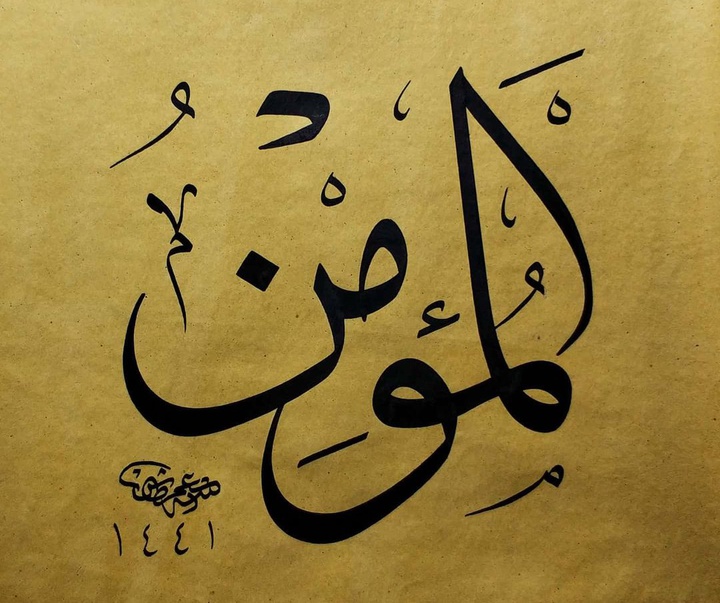 اَلْمُؤْمِنُ
١٤٤١